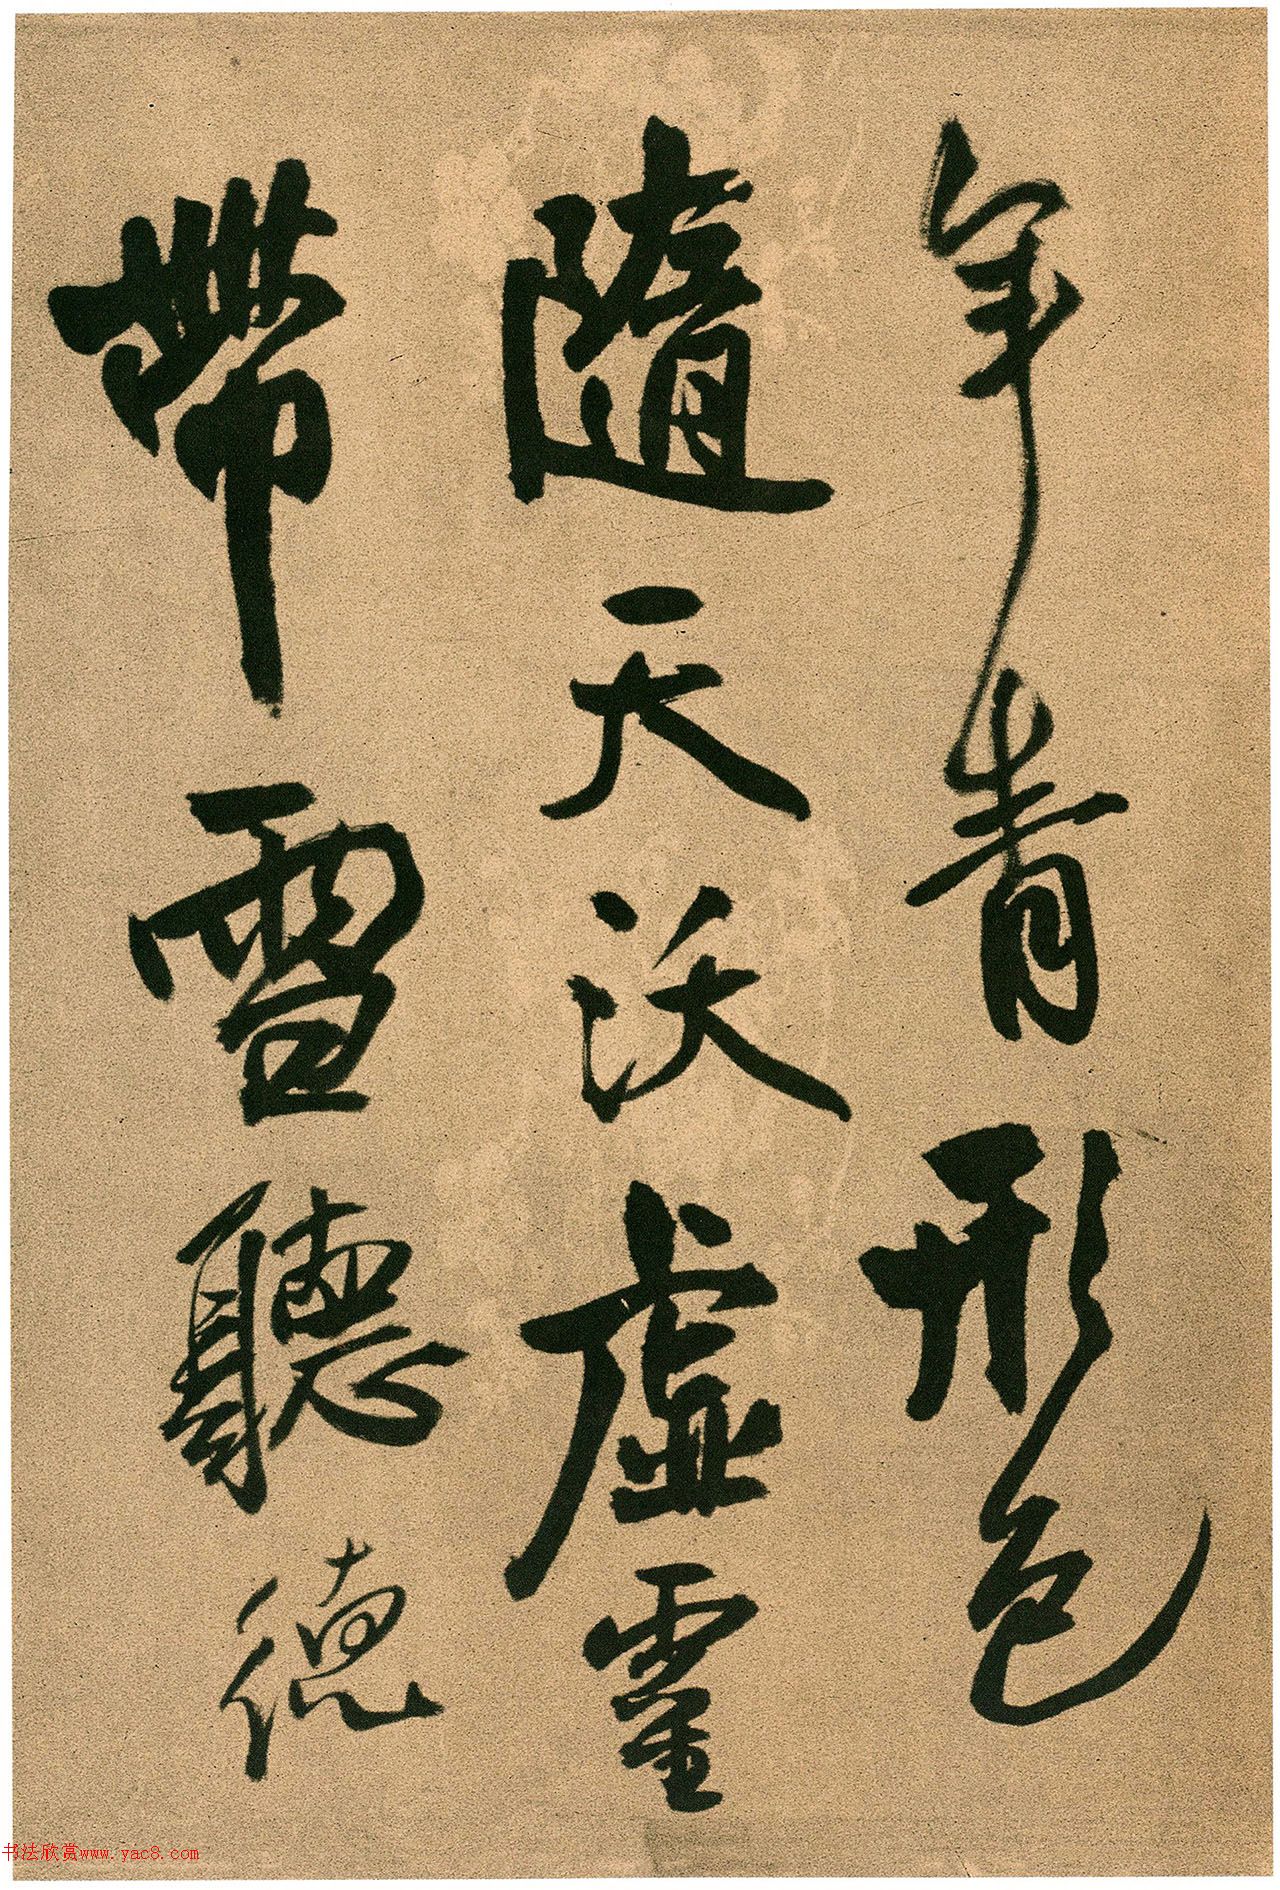 年青形色
隨天沃虛靈
帶雪聽德
书法欣赏www.yac8.com